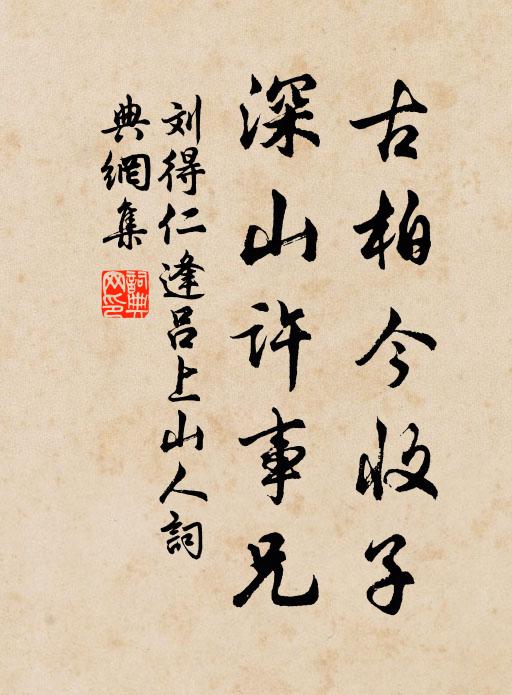 古柏今收子
深山许事兄
刘得仁逢吕上山人詞
典網集
詞典网印